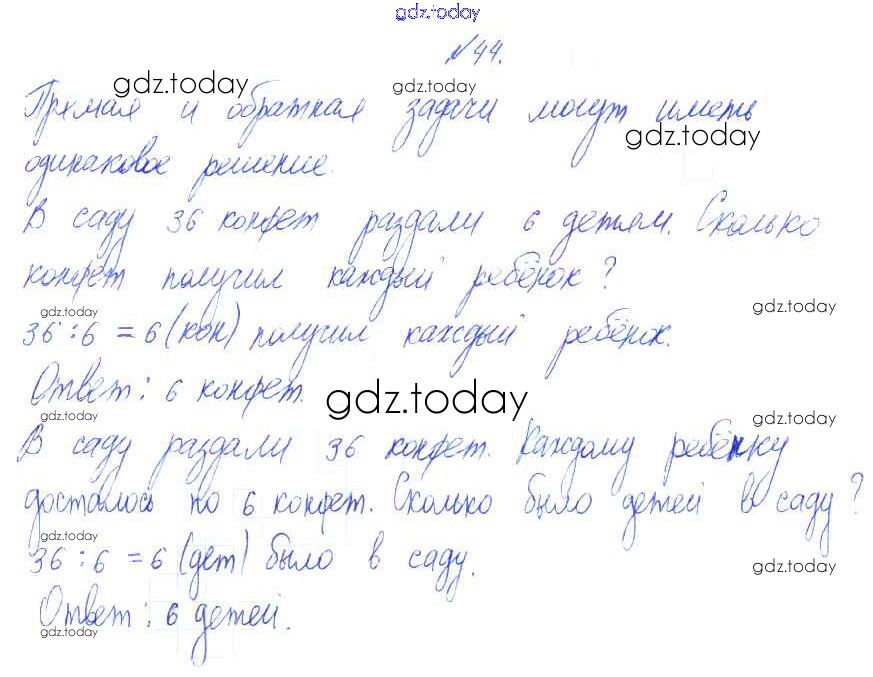 gdz.today
№44.
gdz.today gdz.today
Прямая и обратная задачи могут иметь
gdz.today
одинаковое решение.
В саду 36 конфет раздали 6 детям. Сколько
конфет получил каждый ребёнок?
gdz.today gdz.today
36:6=6(кон) получил каждый ребёнок.
Ответ: 6 конфет.
gdz.today gdz.today gdz.today
В саду раздали 36 конфет. Каждому ребёнку
досталось по 6 конфет. Сколько было детей в саду?
gdz.today
36:6=6(дет) было в саду.
gdz.today
Ответ: 6 детей.
gdz.today